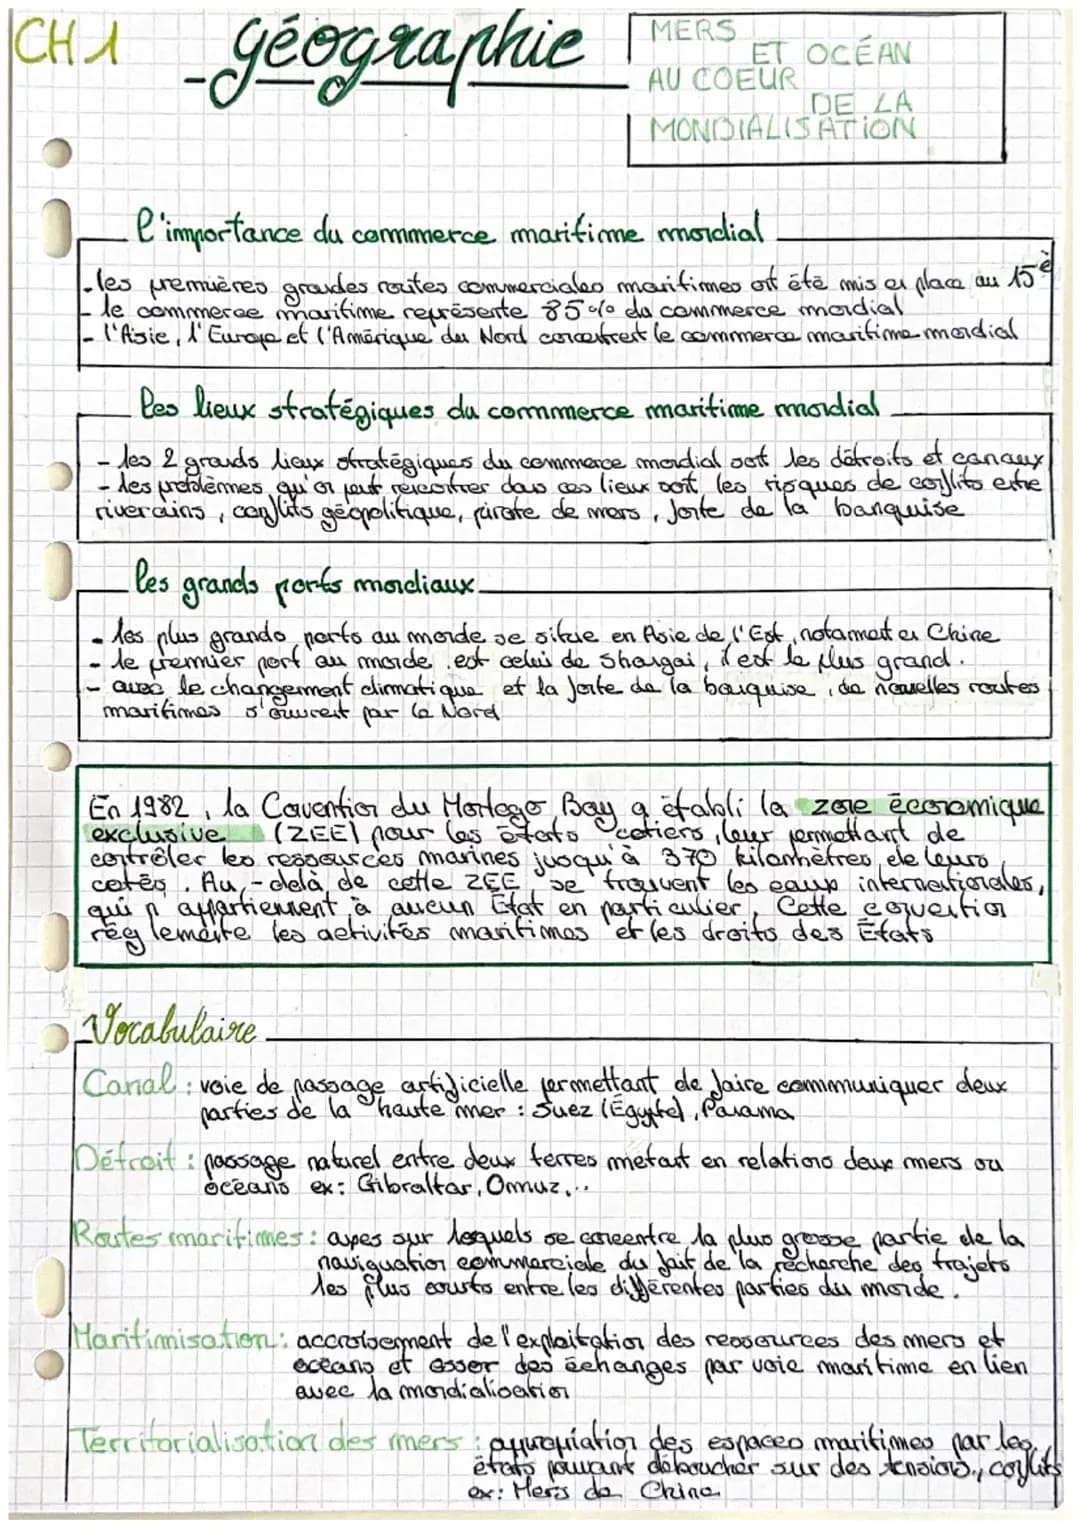 CH 1
géographie
MERS
ET OCÉAN
AU COEUR
DE LA
MONDIALISATION
l'importance du commerce maritime mondial
- les premières grandes routes commerciales maritimes ont été mis en place au 15è
- le commerce maritime représente 85% du commerce mondial
- l'Asie, l'Europe et l'Amérique du Nord concentrent le commerce maritime mondial
les lieux stratégiques du commerce maritime mondial
- les 2 grands lieux stratégiques du commerce mondial sont les détroits et canaux
- les problèmes qu'on peut rencontrer dans ces lieux sont les risques de conflits entre
riverains, conflits géopolitique, pirate de mers, fonte de la banquise
les grands ports mondiaux
- les plus grands ports au monde se situe en Asie de l'Est, notamment en Chine
- le premier port au monde est celui de Shangai, il est le plus grand.
- avec le changement climatique et la fonte de la banquise, de nouvelles routes
maritimes s'ouvrent par le Nord
En 1982, la Convention du Montego Bay a établi la zone économique
exclusive (ZEE) pour les états cotiers, leur permettant de
contrôler les ressources marines jusqu'à 370 kilomhètres de leurs
cotés. Au,-delà de cette ZEE, se trouvent les eaux internationales,
qui n'appartiennent à aucun État en particulier. Cette convention
réglemente les activités maritimes et les droits des États
Vocabulaire
Canal : voie de passage artificielle permettant de faire communiquer deux
parties de la haute mer : Suez (Égypte), Panama
Détroit : passage naturel entre deux terres metant en relations deux mers ou
océans ex: Gibraltar, Ormuz,..
Routes maritimes : axes sur lesquels se concentre la plus grosse partie de la
naviguation commerciale du fait de la recherche des trajets
les plus courts entre les différentes parties du monde.
Maritimisation : accroissement de l'exploitation des ressources des mers et
océans et essor des échanges par voie maritime en lien
avec la mondialisation
Territorialisation des mers : appropriation des espaces maritimes par les
états pouvant déboucher sur des tensions, conflits
ex: Mers de Chine